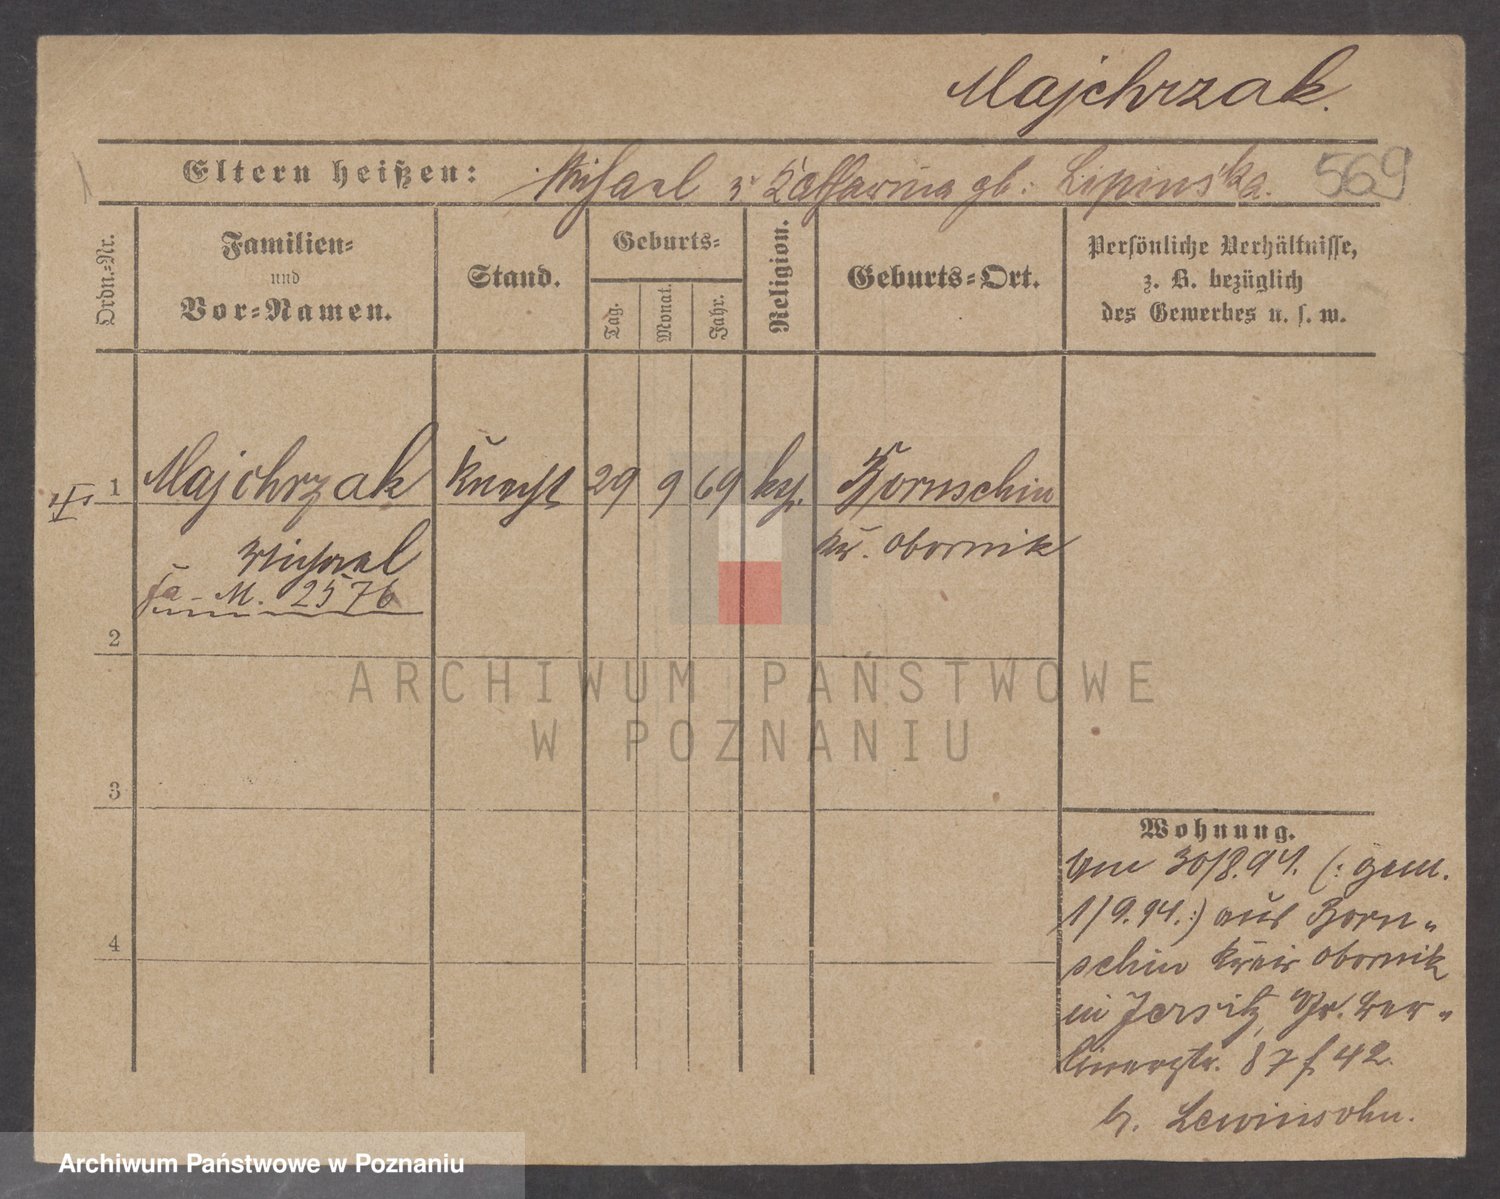 Majchrzak.
Eltern heißen: Michael u. Katharina gb. Lipinska. 569
Ordn.-Nr.
Familien-
und
Vor-Namen.
Stand.
Geburts-
Tag. Monat. Jahr.
Religion.
Geburts-Ort.
Persönliche Verhältnisse,
z. B. bezüglich
des Gewerbes u. s. w.
1 Majchrzak Knecht 29 9 69 kth.
Michael
Kr. Obornik
Fa - M. 2576
2
3
4
Wohnung.
30/8.94. (: gem.
1/9.94. :) aus Born-
schin Kreis Obornik
in Jersitz, Gr. Ber-
linerstr. 87 f 42.
b. Lewinsohn.
ARCHIWUM PAŃSTWOWE
W POZNANIU
Archiwum Państwowe w Poznaniu